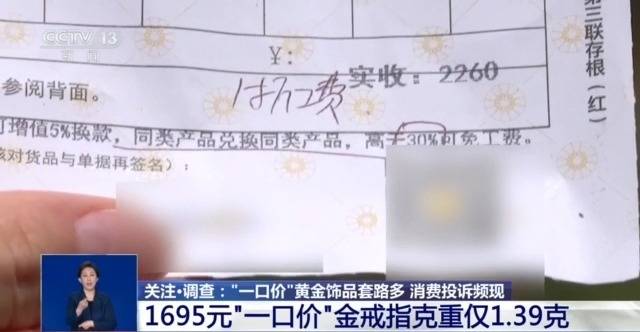 CCTV 13
新闻
第三联存根（红）
¥:
实收：2260
参阅背面。
付工费
可增值5%换款，同类产品兑换同类产品，高于30%可免工费。
核对货品与单据再签名）：
关注·调查："一口价"黄金饰品套路多 消费投诉频现
1695元"一口价"金戒指克重仅1.39克